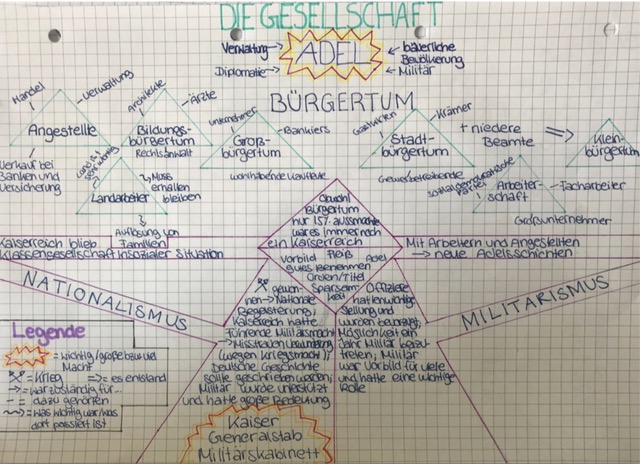 DIE GESELLSCHAFT
Verwaltung
ADEL
bäuerliche
Bevölkerung
Diplomatie
Militär
BÜRGERTUM
Handel
Verwaltung
Angestellte
Verkauf bei
Banken und
Versicherung
Architekte
Ärzte
Bildungs-
bürgertum
Rechtsanwalt
Unternehmer
Bankiers
Groß-
bürgertum
wohlhabende Kaufleute
Gastwirten
Krämer
Stadt-
bürgertum
Gewerbetreibende
+ niedere
Beamte
Klein-
bürgertum
Landarbeiter
Muss
erhalten
bleiben
Auflösung von
Familien
Arbeiter-
schaft
Facharbeiter
Großunternehmer
Obwohl
Bürgertum
nur 15% ausmachte
war es immer noch
ein Kaiserreich
Kaiserreich blieb
Klassengesellschaft in sozialer Situation
Mit Arbeitern und Angestellten
→ neue Adelsschichten
Vorbild Adel
Fleiß
gutes Benehmen
Orden/Titel
Sparsam-
keit
NATIONALISMUS
MILITARISMUS
gewon-
nen → Nationale
Begeisterung,
Kaiserreich hatte
führende Militärmacht
(wegen Kriegsmacht);
Deutsche Geschichte
sollte geschrieben werden;
Militär wurde unterstützt
und hatte große Bedeutung
Offiziere
hatten wichtige
Stellung und
wurden bevorzugt;
Möglichkeit ein
Jahr Militär beizu-
treten; Militär
war Vorbild für viele
und hatte eine wichtige
Rolle
Legende
= wichtig/große bzw. viel
Macht
= Krieg => = es entstand
→ = war zuständig für...
- = dazu gehörten
= was wichtig war/was
dort passiert ist
Kaiser
Generalstab
Militärskabinett